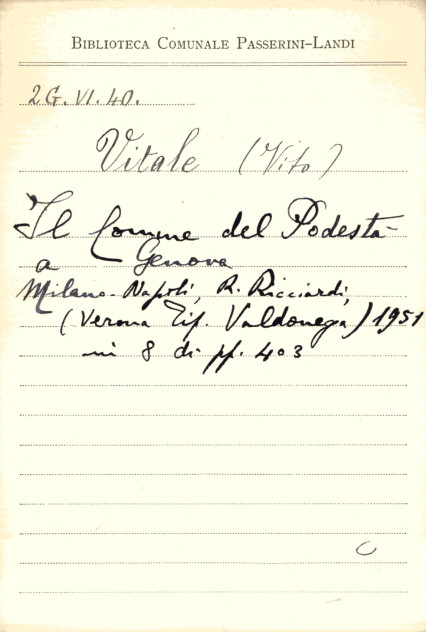 BIBLIOTECA COMUNALE PASSERINI-LANDI
2G.VI.40.
Vitale (Vito)
Il Comune del Podestà
a Genova
Milano-Napoli, R. Ricciardi,
(Verona Tip. Valdonega) 1951
in 8 di pp. 403
C